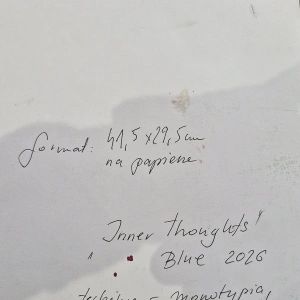 format: 41,5x29,5cm
na papierze
"Inner thoughts"
Blue 2026
technika - monotypia,